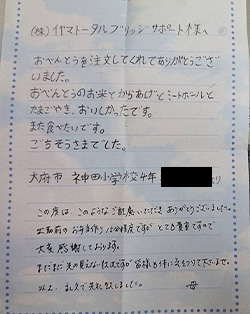 (株)イヤマトータルブリッジサポート様へ
おべんとうを注文してくれてありがとうござ
いました。
おべんとうのお米とからあげとミートボールと
たまごやき、おいしかったです。
また食べたいです。
ごちそうさまでした。
大府市 神田小学校4年 より
この度は、このようなご配慮いただき ありがとうございました。
出勤前のお弁当作りは ですが とても貴重ですので
大変感謝しております。
まだまだ先の見えない ですが 皆様お体に気をつけて下さいませ。
以上、 失礼致しました。 母